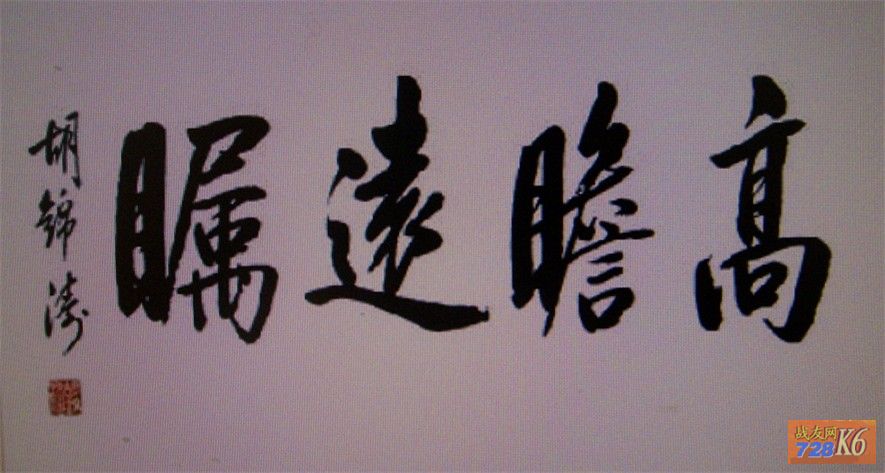 高瞻遠瞩
胡錦濤
战友网
728K6